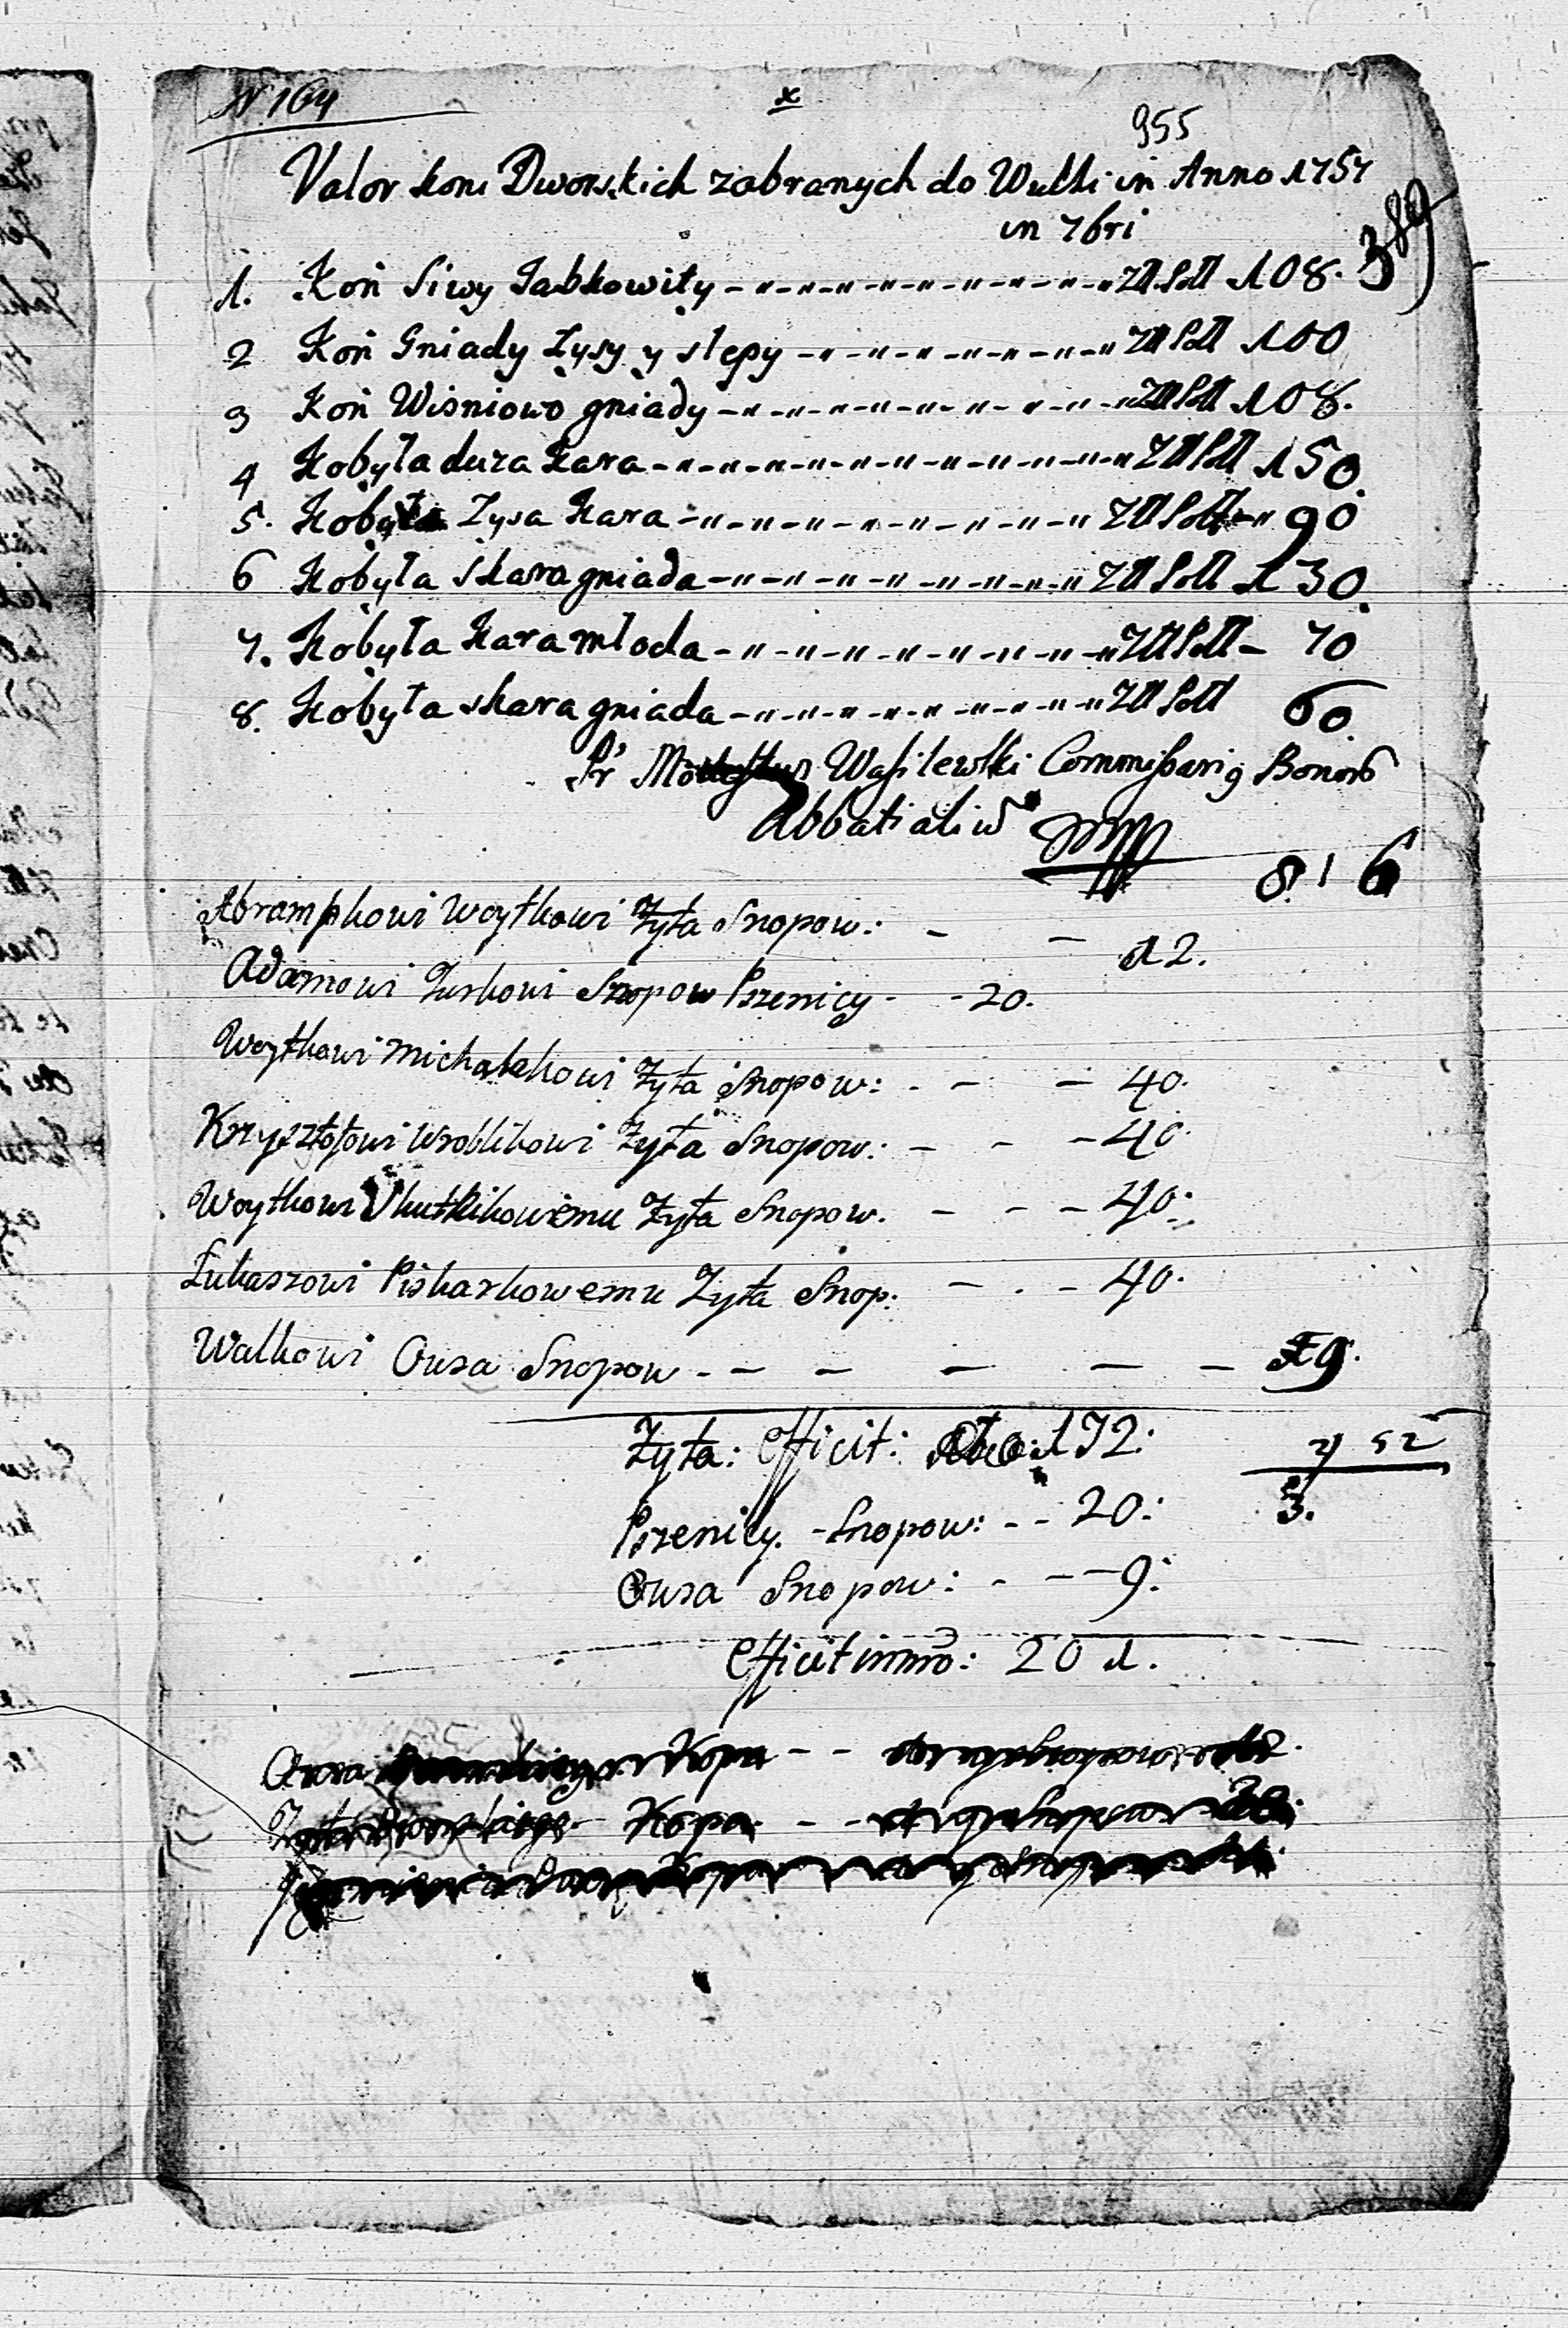 N 164
x
955
389
Valor koni Dworskich zabranych do Wulki in Anno 1757
in 7bri
1. Koń Siwy Jabkowity - złł Poll 108.
2 Koń Gniady Łysy y slepy - złł Poll 100
3 Koń Wisniowo gniady - złł Poll 108.
4 Kobyła duza Kara - złł Poll 150.
5. Kobyła Łysa Kara - złł Poll - 90
6 Kobyła skara gniada - złł Poll 130.
7. Kobyła Kara młoda - złł Poll - 70
8. Kobyła skara gniada - złł Poll 60.
Fr Wasilewski Commissariꝰ Bonor
Abbatialiu mp
816
Abramkowi Woytkowi Zyta Snopow: - - 12.
Adamowi Turkowi Snopow Pszenicy - - 20.
Woytkowi Michalekowi Zyta Snopow: - - - 40.
Krzysztofowi Wroblikowi Zyta Snopow: - - - 40.
Woytkowi Zyta Snopow. - - - 40.
Łukaszowi Piskarkowemu Zyta Snop: - - - 40.
Walkowi Owsa Snopow - - - - - - 9.
Zyta: Efficit: 172:
52
3.
Pszenicy - Snopow: - - 20:
Owsa Snopow: - - - 9:
Efficit in 201.
Owsa Kopa - -
Kopa - -